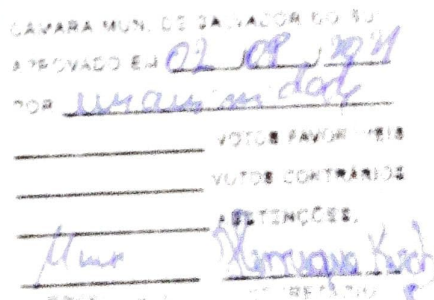 CAMARA MUN. DE SALVADOR DO SUL
APROVADO EM 02 / 08 / 2021
POR unanimidade
VOTOS FAVORÁVEIS
VOTOS CONTRÁRIOS
ABSTENÇÕES.
SECRETÁRIO